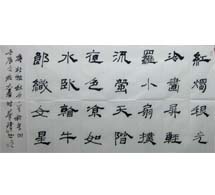 紅燭秋光
冷畫屏輕
羅小扇撲
流螢天階
夜色涼如
水臥看牛
郎織女星